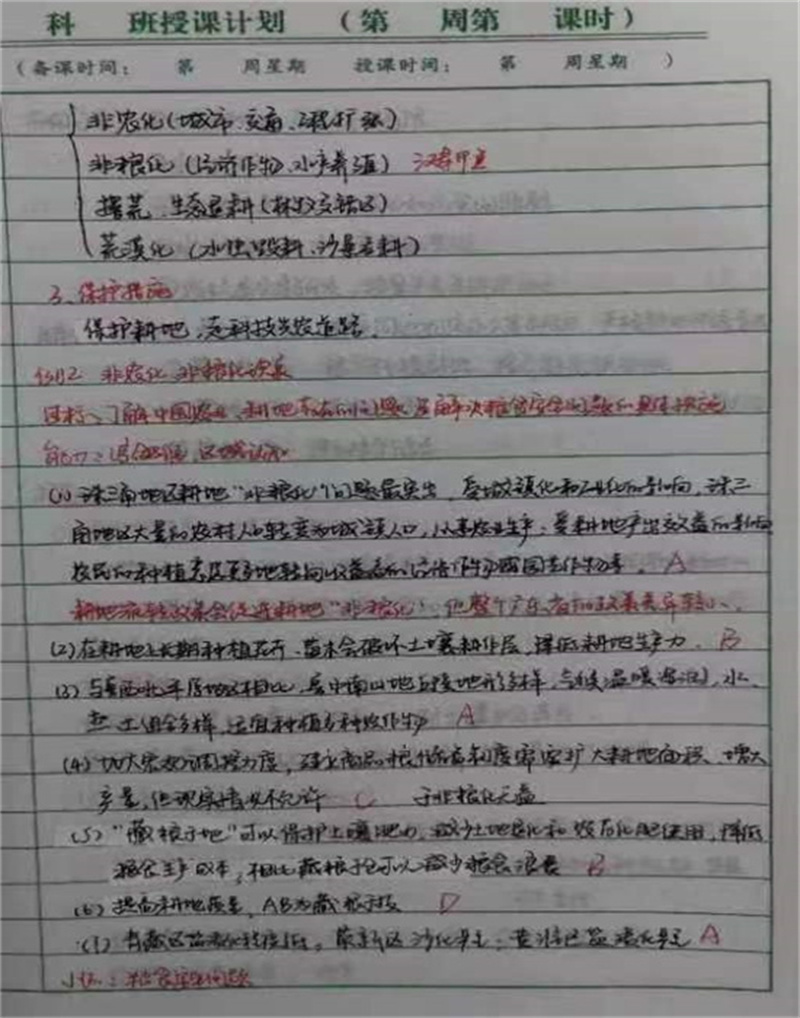 科 班授课计划 (第 周第 课时)
(备课时间: 第 周星期 授课时间: 第 周星期 )
非农化(城市、交通、工程扩张)
非粮化(经济作物、水产养殖)
撂荒、生态退耕(林牧交错区)
荒漠化(水蚀毁耕、沙暴弃耕)
3、保护措施
保护耕地,走科技兴农道路.
非农化 非粮化
目标、了解中国农业、耕地存在的问题及解决粮食安全问题的具体措施
能力:综合思维,区域认知
(1) 珠三角地区耕地“非粮化”问题最突出,受城镇化和工业化的影响,珠三
角地区大量的农村人口转变为城镇人口,从事农业生产;受耕地产出效益的影响
农民的种植意愿更多地转向收益高的经济作物 A
耕地流转政策会促进耕地“非粮化”,但整个广东省的政策差异较小、
(2) 在耕地上长期种植花卉、苗木会破坏土壤耕作层,降低耕地生产力. B
(3) 与 平原地区相比, 山地丘陵地形多样,气候温暖湿润,水、
土组合多样,适宜种植多种农作物 A
(4) 加大宏观调控力度,建立商品粮 制度 扩大耕地面积、增大
产量,但现实情况不允许 C 于非粮化无益
(5) “藏粮于地”可以保护土壤肥力,减少土地退化和农药化肥使用,降低
粮食生产成本,相比藏粮于仓可以减少粮食浪费 B
(6) 提高耕地质量,AB为藏粮于技 D
(7) 青藏区盐渍化程度低,蒙新区沙化 ;黄淮区盐渍化 A
小结:粮食安全问题